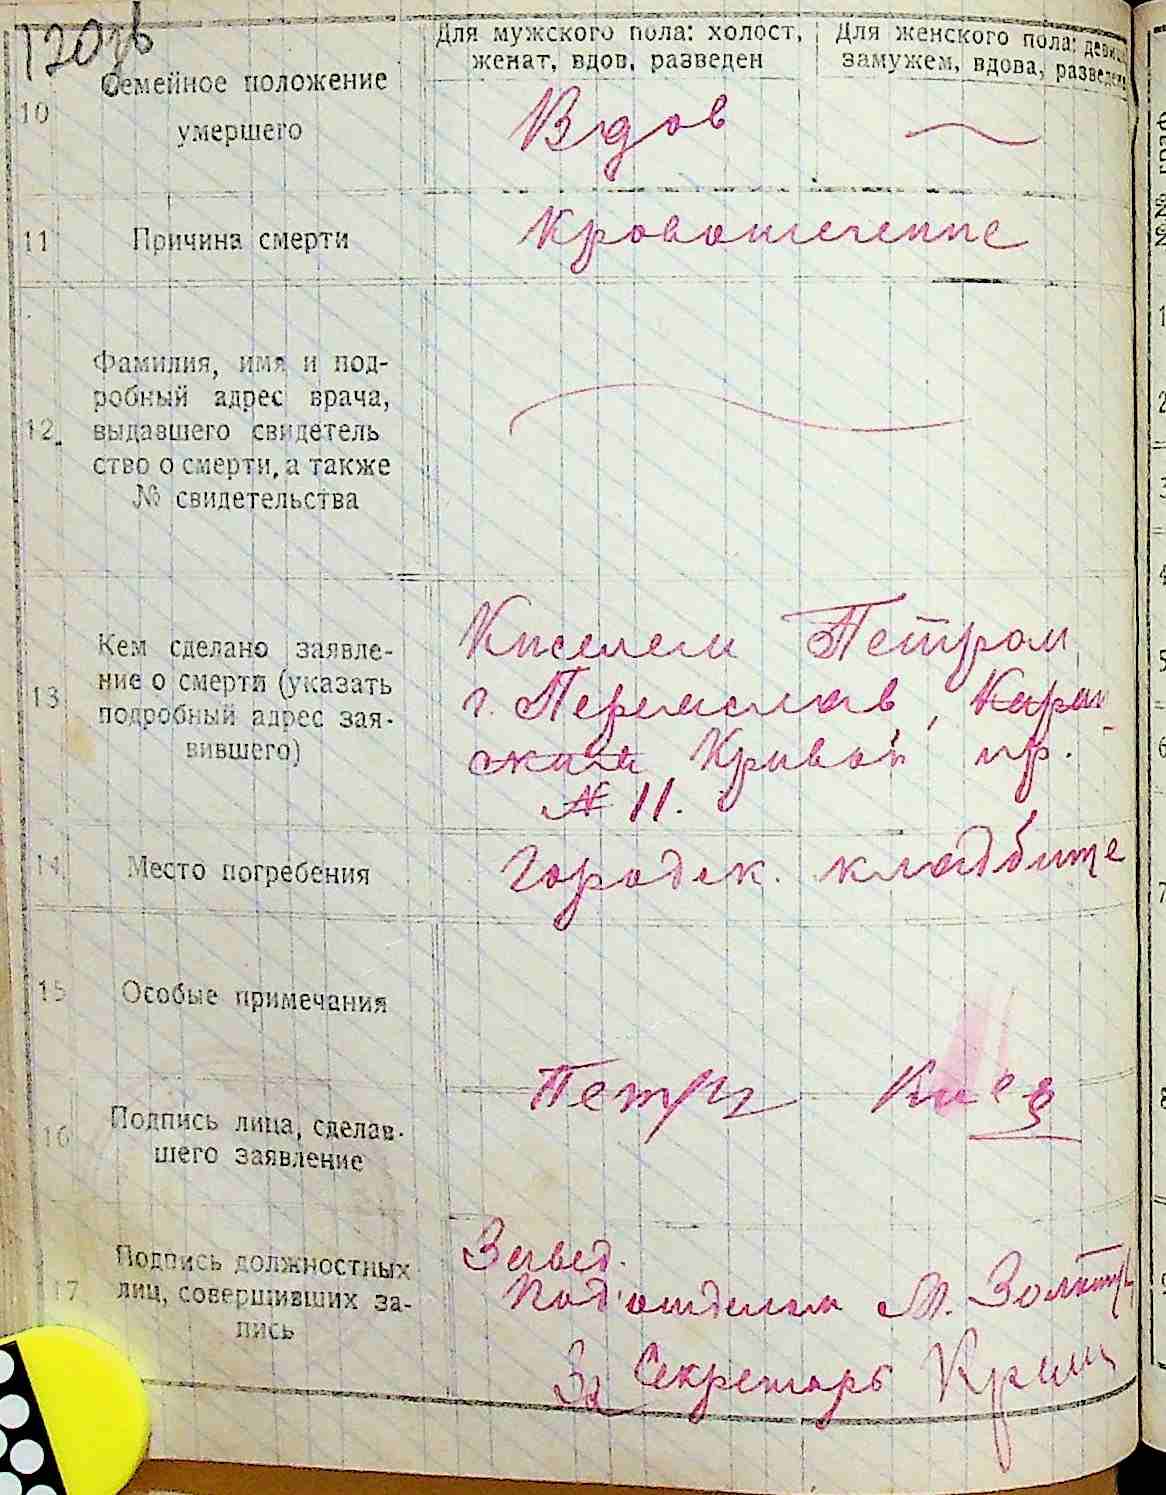 120зв
Для мужского пола: холост, женат, вдов, разведен
Для женского пола: девица, замужем, вдова, разведен
10 Семейное положение умершего
Вдов
11 Причина смерти
Кровотечение
12. Фамилия, имя и под-
робный адрес врача,
выдавшего свидетель
ство о смерти, а также
№ свидетельства
13 Кем сделано заявле-
ние о смерти (указать
подробный адрес зая-
вившего)
Киселем Петром
г. Переяслав, Каран
ская Кривой пр.
№ 11.
14 Место погребения
Городск. кладбище
15 Особые примечания
16 Подпись лица, сделав-
шего заявление
Петр
17 Подпись должностных
лиц, совершивших за-
пись
Завед.
Под'отделом М.
За Секретарь
№№ граф
1
2
3
4
5
6
7